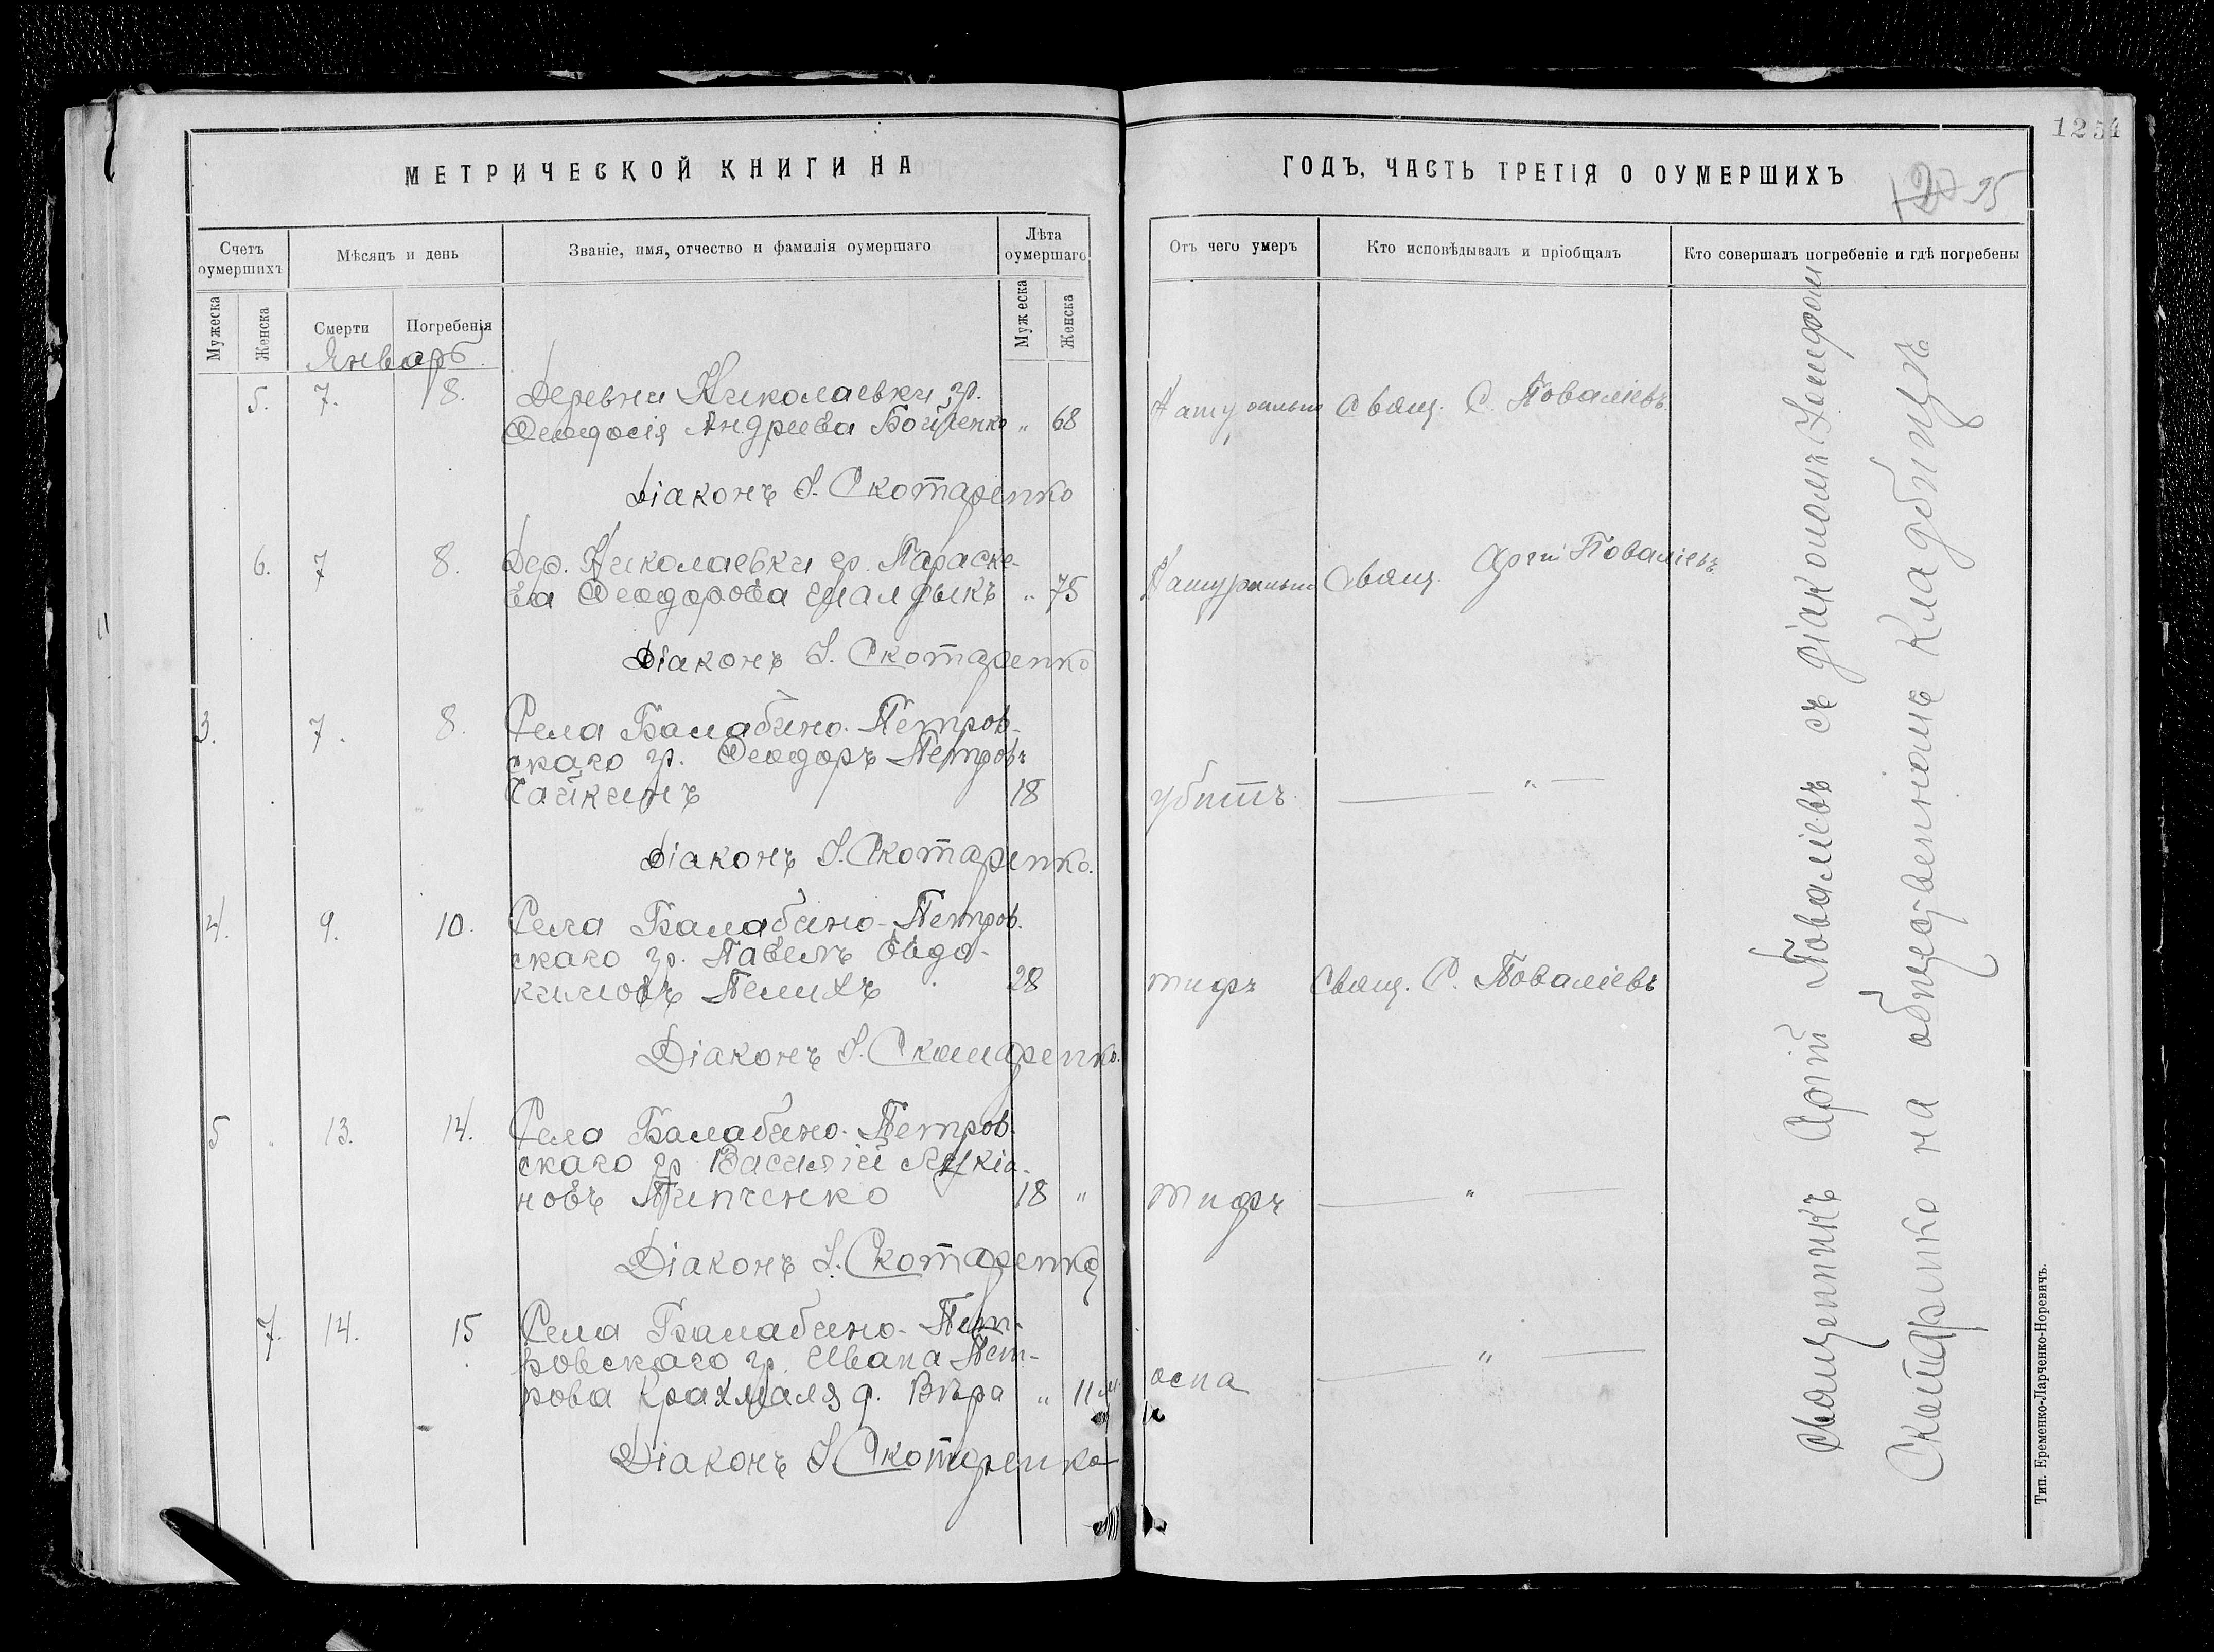 1254
МЕТРИЧЕСКОЙ КНИГИ НА
ГОДЪ, ЧАСТЬ ТРЕТІЯ О ОУМЕРШИХЪ
95
Счетъ оумершихъ
Мѣсяцъ и день
Званіе, имя, отчество и фамилія оумершаго
Лѣта оумершаго
Отъ чего умеръ
Кто исповѣдывалъ и пріобщалъ
Кто совершалъ погребеніе и гдѣ погребены
Мужеска
Женска
Смерти
Погребенія
Мужеска
Женска
Январь
5. 7. 8. Деревни Николаевки гр.
Феодосія Андреева Бойченко " 68
Натурально Свящ. С. Поваліевъ
Діаконъ І. Скотаренко
6. 7 8. Дер. Николаевки гр. Параске-
ва Феодорова " 75
Натурально Свящ. Поваліевъ
Діаконъ І. Скотаренко
3. 7. 8. Села Балабино-Петров-
скаго гр. Феодоръ Петровъ
Чайкинъ 18
убитъ "
Діаконъ І. Скотаренко.
4. 9. 10. Села Балабино-Петров-
скаго гр. Павелъ Евдо-
кимовъ Пелихъ 28
тифъ Свящ. С. Поваліевъ
Діаконъ І. Скотаренко.
5 " 13. 14. Села Балабино-Петров-
скаго гр Василій Лукіа-
новъ Пипченко 18 "
тифъ "
Діаконъ І. Скотаренко
7. 14. 15 Села Балабино-Пет-
ровскаго гр. Ивана Пет-
рова Крахмаля д. Вѣра " 11 м.
оспа "
Діаконъ І Скотаренко
Священникъ Поваліевъ съ діакономъ
Скотаренко на общественномъ кладбищѣ
Тип. Еременко-Ларченко-Норевичъ.